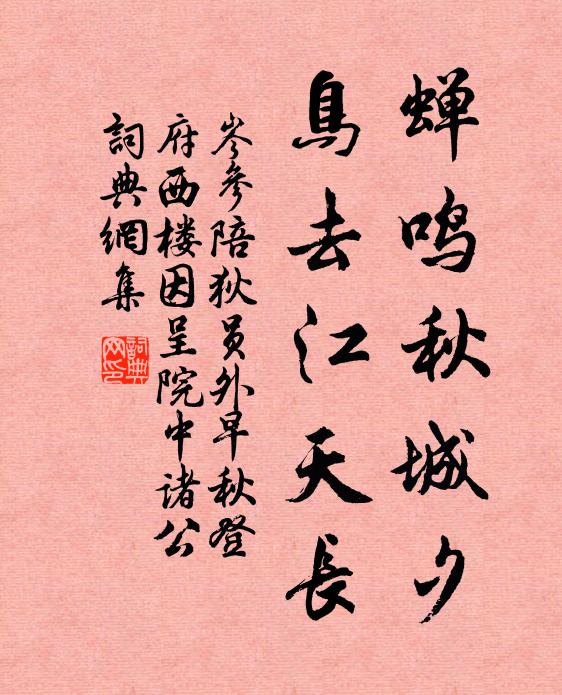 蝉鸣秋城夕
鳥去江天長
岑參陪狄员外早秋登
府西楼因呈院中诸公
詞典網集
詞典
网印